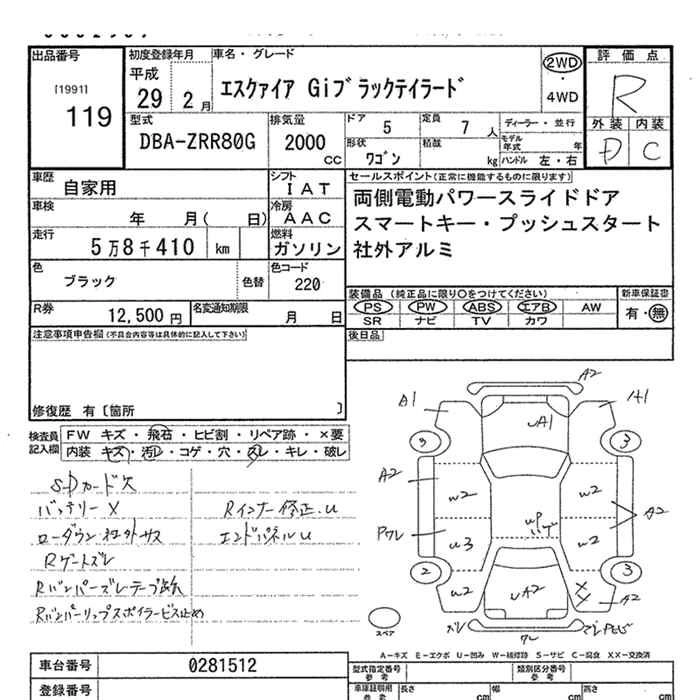 出品番号 初度登録年月 車名・グレード 評価点
[1991] 119
平成 29 2月
エスクァイア Giブラックテイラード
2WD ・ 4WD
R
型式 DBA-ZRR80G
排気量 2000 cc
ドア 5
定員 7 人
ディーラー・並行
モデル年式 年
形状 ワゴン
積載 kg
ハンドル 左・右
外装 内装
D C
車歴 自家用
シフト IAT
セールスポイント(正常に機能するものに限ります)
両側電動パワースライドドア
スマートキー・プッシュスタート
社外アルミ
車検 年 月( 日)
冷房 AAC
走行 5万8千410 km
燃料 ガソリン
色 ブラック 色替
色コード 220
装備品(純正品に限り○をつけてください) 新車保証書
PS PW ABS エアB AW 有・無
SR ナビ TV カワ
R券 12,500円
名変通知期限 月 日
後日品
注意事項申告欄(不具合内容等は具体的に記入して下さい)
修復歴 有〔箇所 〕
検査員記入欄
FW キズ・飛石・ヒビ割・リペア跡・×要
内装 キズ・汚レ・コゲ・穴・スレ・キレ・破レ
SDカード欠
バッテリーX
ローダウン社外サス
Rゲートズレ
Rバンパーズレテープ跡
Rバンパーリップスポイラービス止め
Rインナー修正.u
エンドパネルu
A2
A1 A1
uA1
3 3
A2
w2 w2
A2
Pワレ
u3 w2
2 3
u2 uA2 XX
A2
ズレ ワレ
スペア
A－キズ E－エクボ U－凹み W－補修跡 S－サビ C－腐食 XX－交換済
車台番号 0281512
型式指定番号 参考
類別区分番号 参考
登録番号
車庫証明用 参考
長さ cm 幅 cm 高さ cm